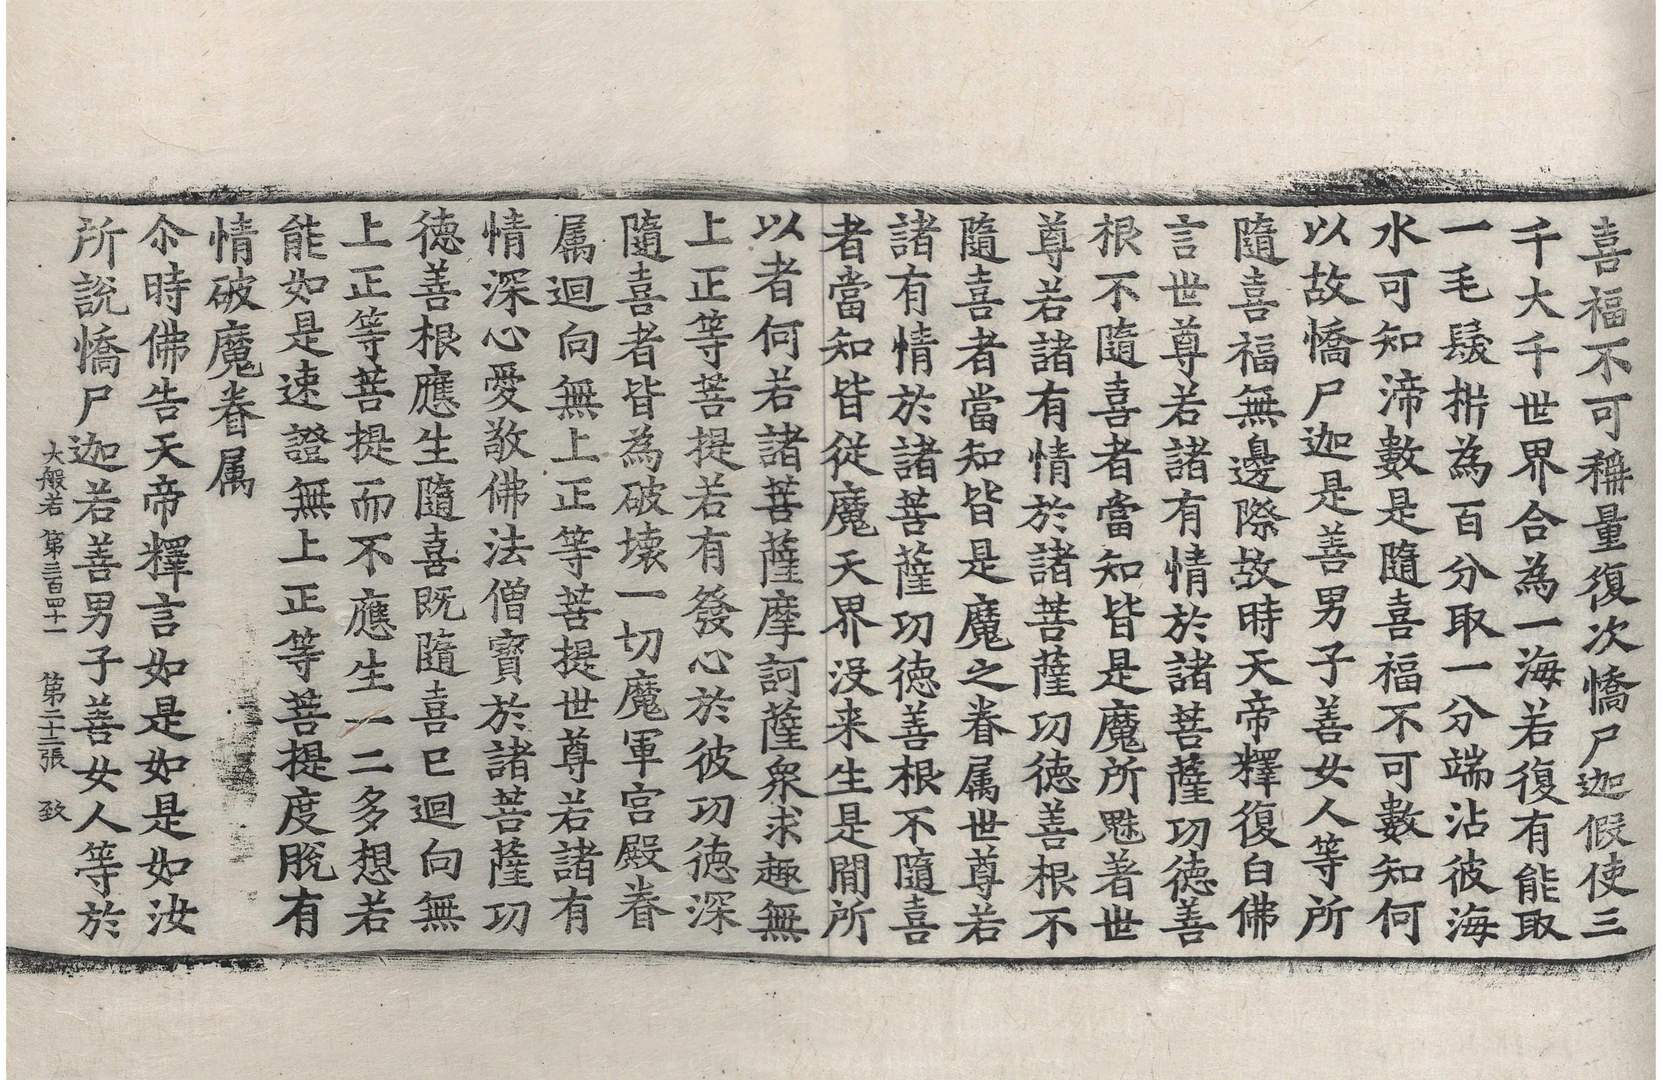 喜福不可稱量復次憍尸迦假使三
千大千世界合為一海若復有能取
一毛髮㭊為百分取一分端沾彼海
水可知渧數是隨喜福不可數知何
以故憍尸迦是善男子善女人等所
隨喜福無邊際故時天帝釋復白佛
言世尊若諸有情於諸菩薩功德善
根不隨喜者當知皆是魔所魅著世
尊若諸有情於諸菩薩功德善根不
隨喜者當知皆是魔之眷属世尊若
諸有情於諸菩薩功德善根不隨喜
者當知皆從魔天界没来生是間所
以者何若諸菩薩摩訶薩衆求趣無
上正等菩提若有發心於彼功德深
隨喜者皆為破壞一切魔軍宮殿眷
属迴向無上正等菩提世尊若諸有
情深心愛敬佛法僧寳於諸菩薩功
德善根應生隨喜既隨喜已迴向無
上正等菩提而不應生一二多想若
能如是速證無上正等菩提度脫有
情破魔眷属
尒時佛告天帝釋言如是如是如汝
所說憍尸迦若善男子善女人等於
大般若 第三百四十一 第二十二張 致